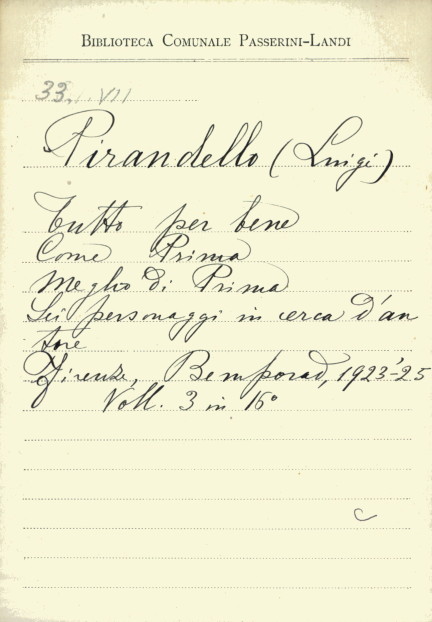 BIBLIOTECA COMUNALE PASSERINI-LANDI
33. VII
Pirandello (Luigi)
Tutto per bene
Come Prima
Meglio di Prima
Sei personaggi in cerca d'au
tore
Firenze, Bemporad, 1923-25
Voll. 3 in 16°
C